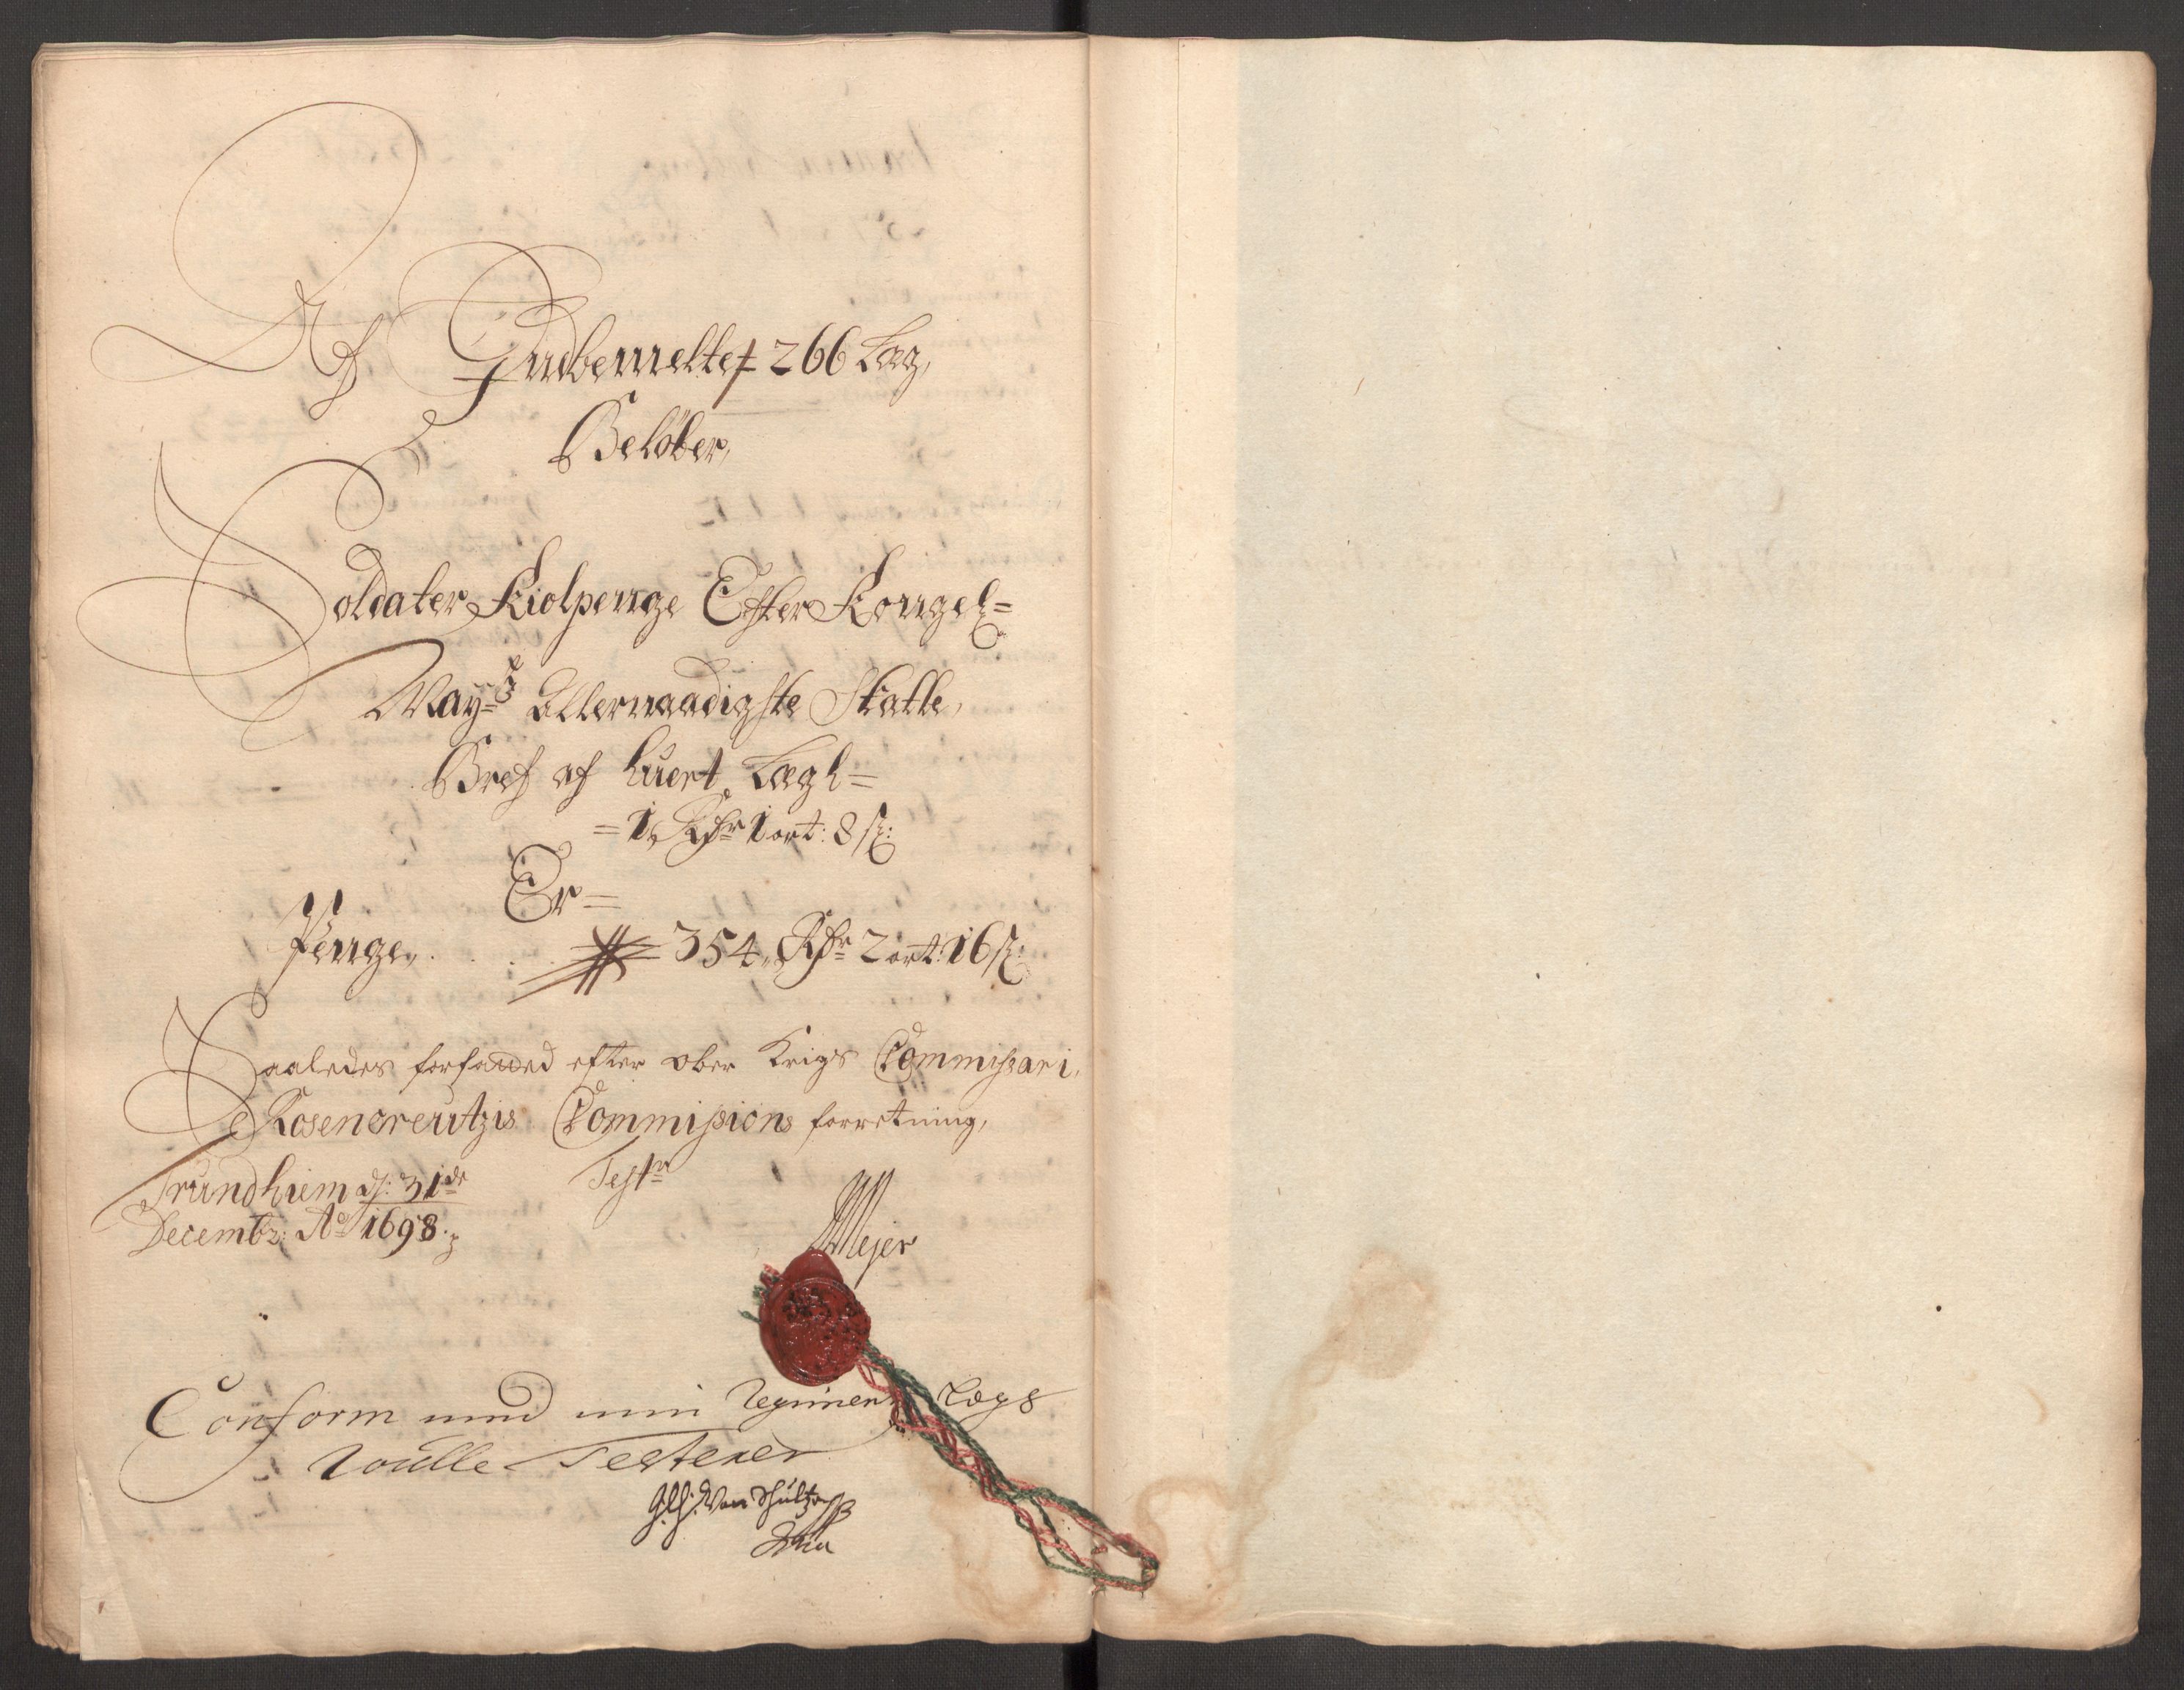 Af Indbemelte 266 Læg,
Beløber,
Soldater Kiolpenge Efter Kongel=
May:ts Allernaadigste Skatte,
Bref af huert Lægh=
=1 Rdr 1 ort: 8 s:
Er=
Penge, . . . 354 Rdr 2 ort: 16 s:
Saaledes forfatted efter ober Krigs Commissari,
Rosencreutzis Commissions forretning,
Trundhiem d: 31de Test:
Decembr: Ao 1698.
Mejer
Conform med min Regiments Lægs
Roulle Testerer
Von Schultz